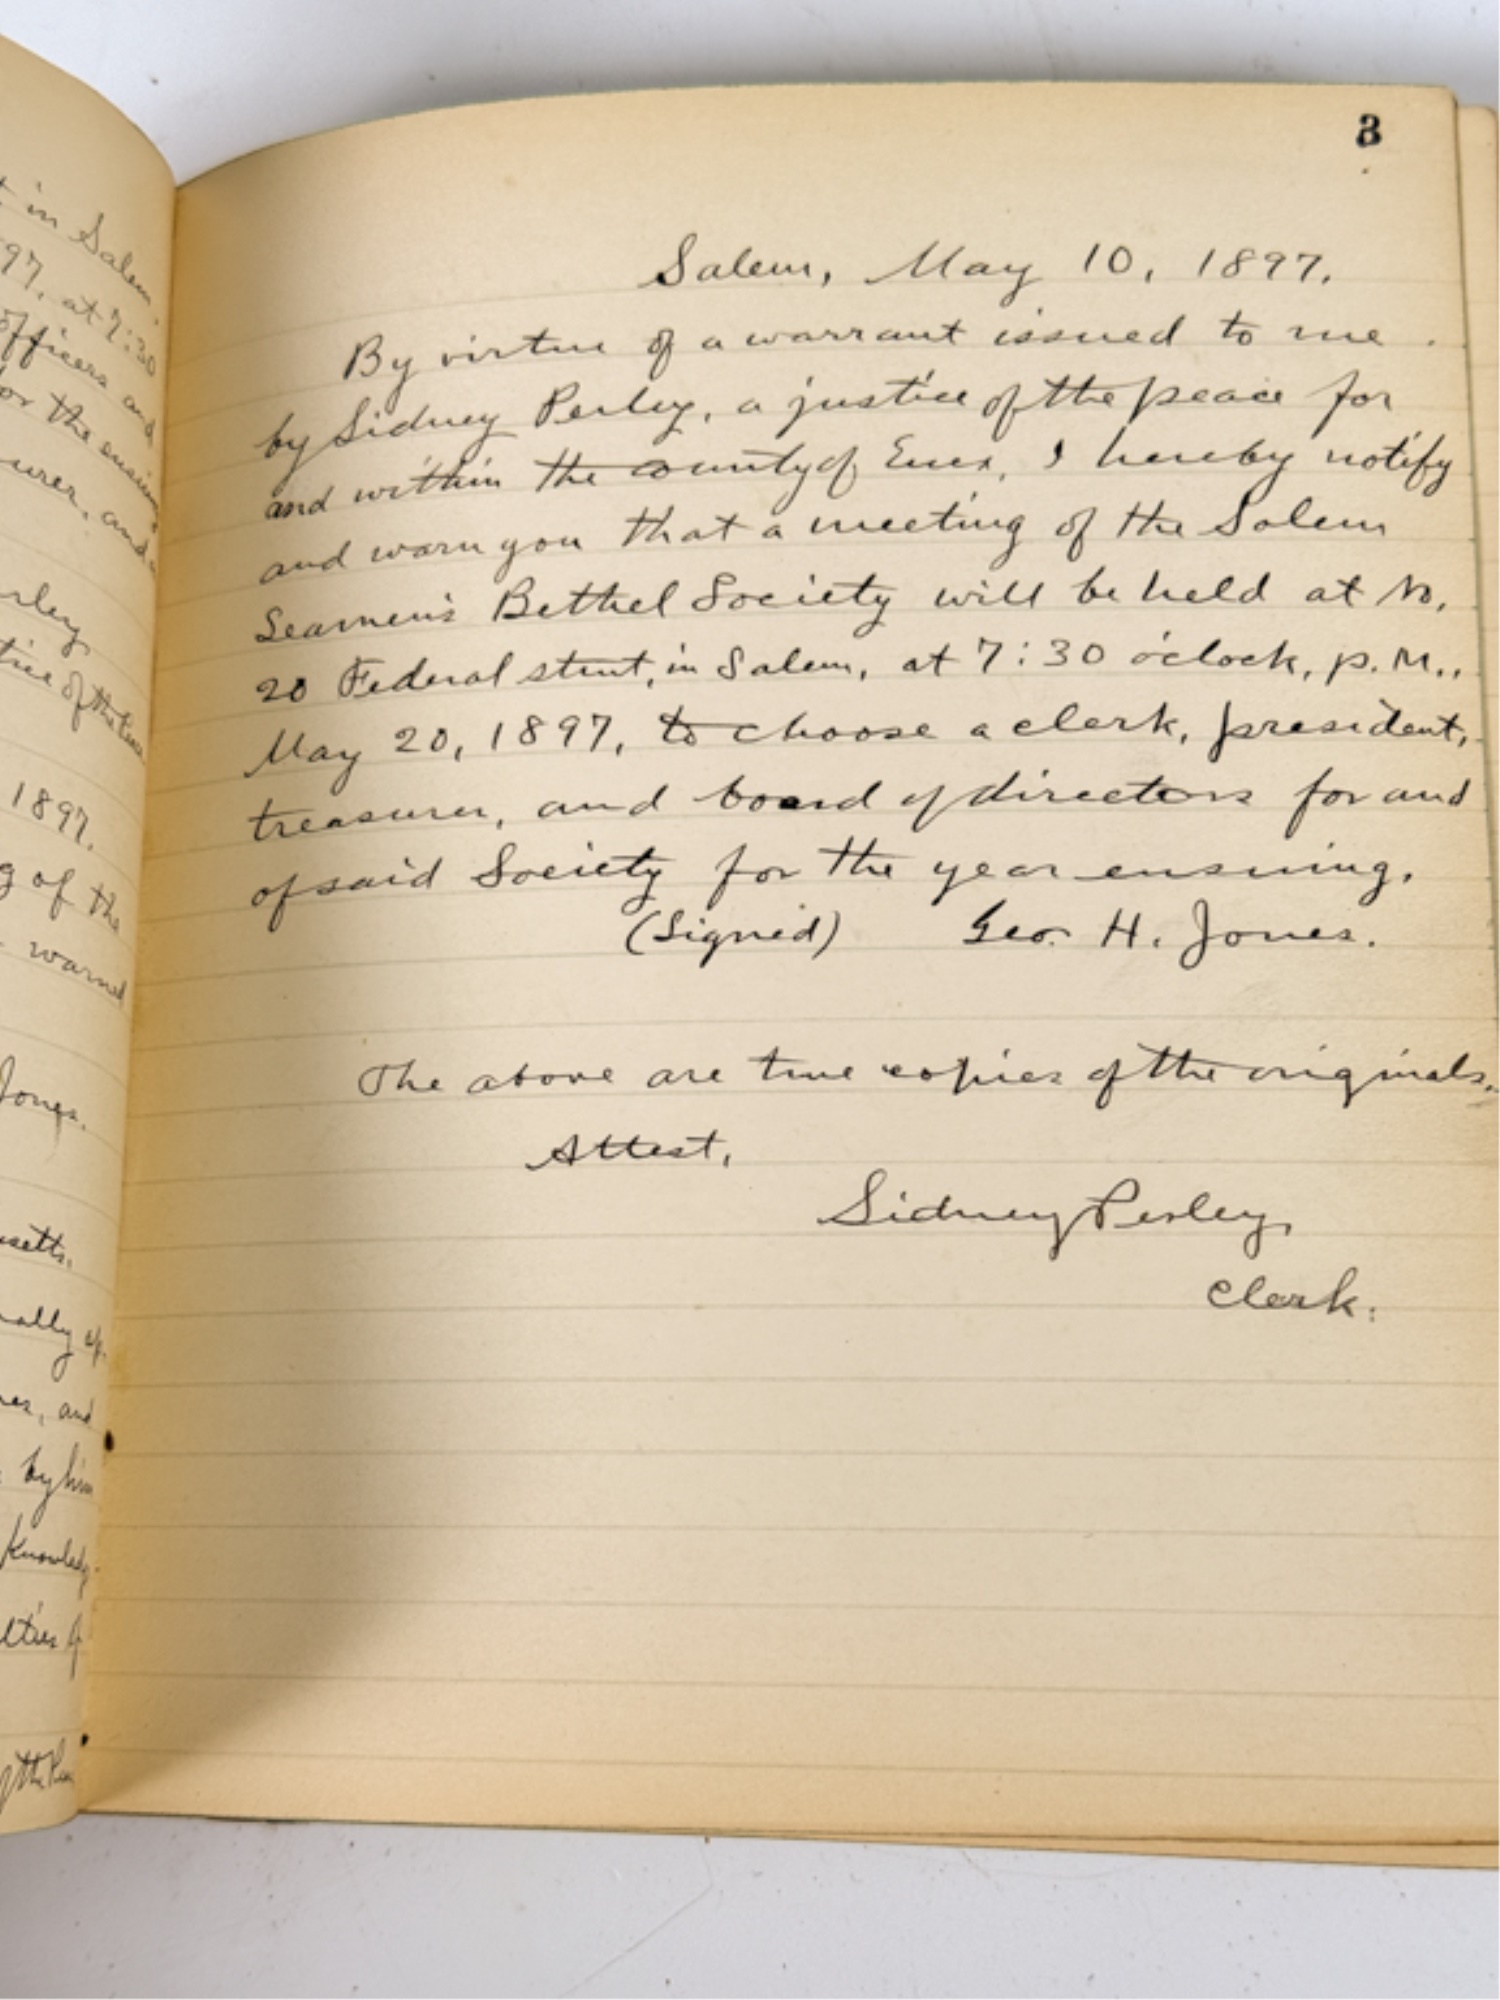 in Salem.
97, at 7:30
officers and
for the ensuing
urer, and
rley
tice of the Peace
1897.
g of the
warned
Jones.
usetts.
nally ap
nes, and
by him
Knowledg
lties of
of the Peace
3
Salem, May 10, 1897.
By virtue of a warrant issued to me
by Sidney Perley, a justice of the peace for
and within the county of Essex, I hereby notify
and warn you that a meeting of the Salem
Seamen's Bethel Society will be held at No.
20 Federal street, in Salem, at 7:30 o'clock, p.M.,
May 20, 1897, to choose a clerk, president,
treasurer, and board of directors for and
of said Society for the year ensuing.
(Signed) Geo. H. Jones.
The above are true copies of the originals.
Attest,
Sidney Perley,
Clerk.